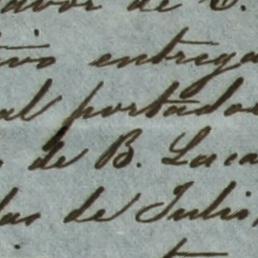 avor de C.
ivo entrega
al portador
de B. Luca
das de Julio